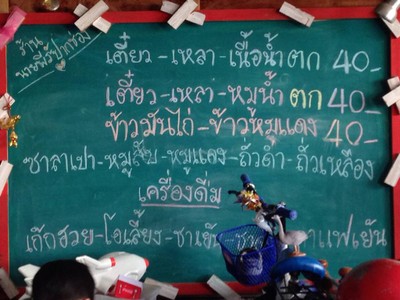 ร้าน
เตี๋ยว-เหลา-เนื้อน้ำตก 40-
เตี๋ยว-เหลา-หมูน้ำตก 40-
ข้าวมันไก่-ข้าวหมูแดง 40-
ซาลาเปา-หมูสับ-หมูแดง-ถั่วดำ-ถั่วเหลือง
เครื่องดื่ม
เก๊กฮวย-โอเลี้ยง-ชาเย็น
กาแฟเย็น